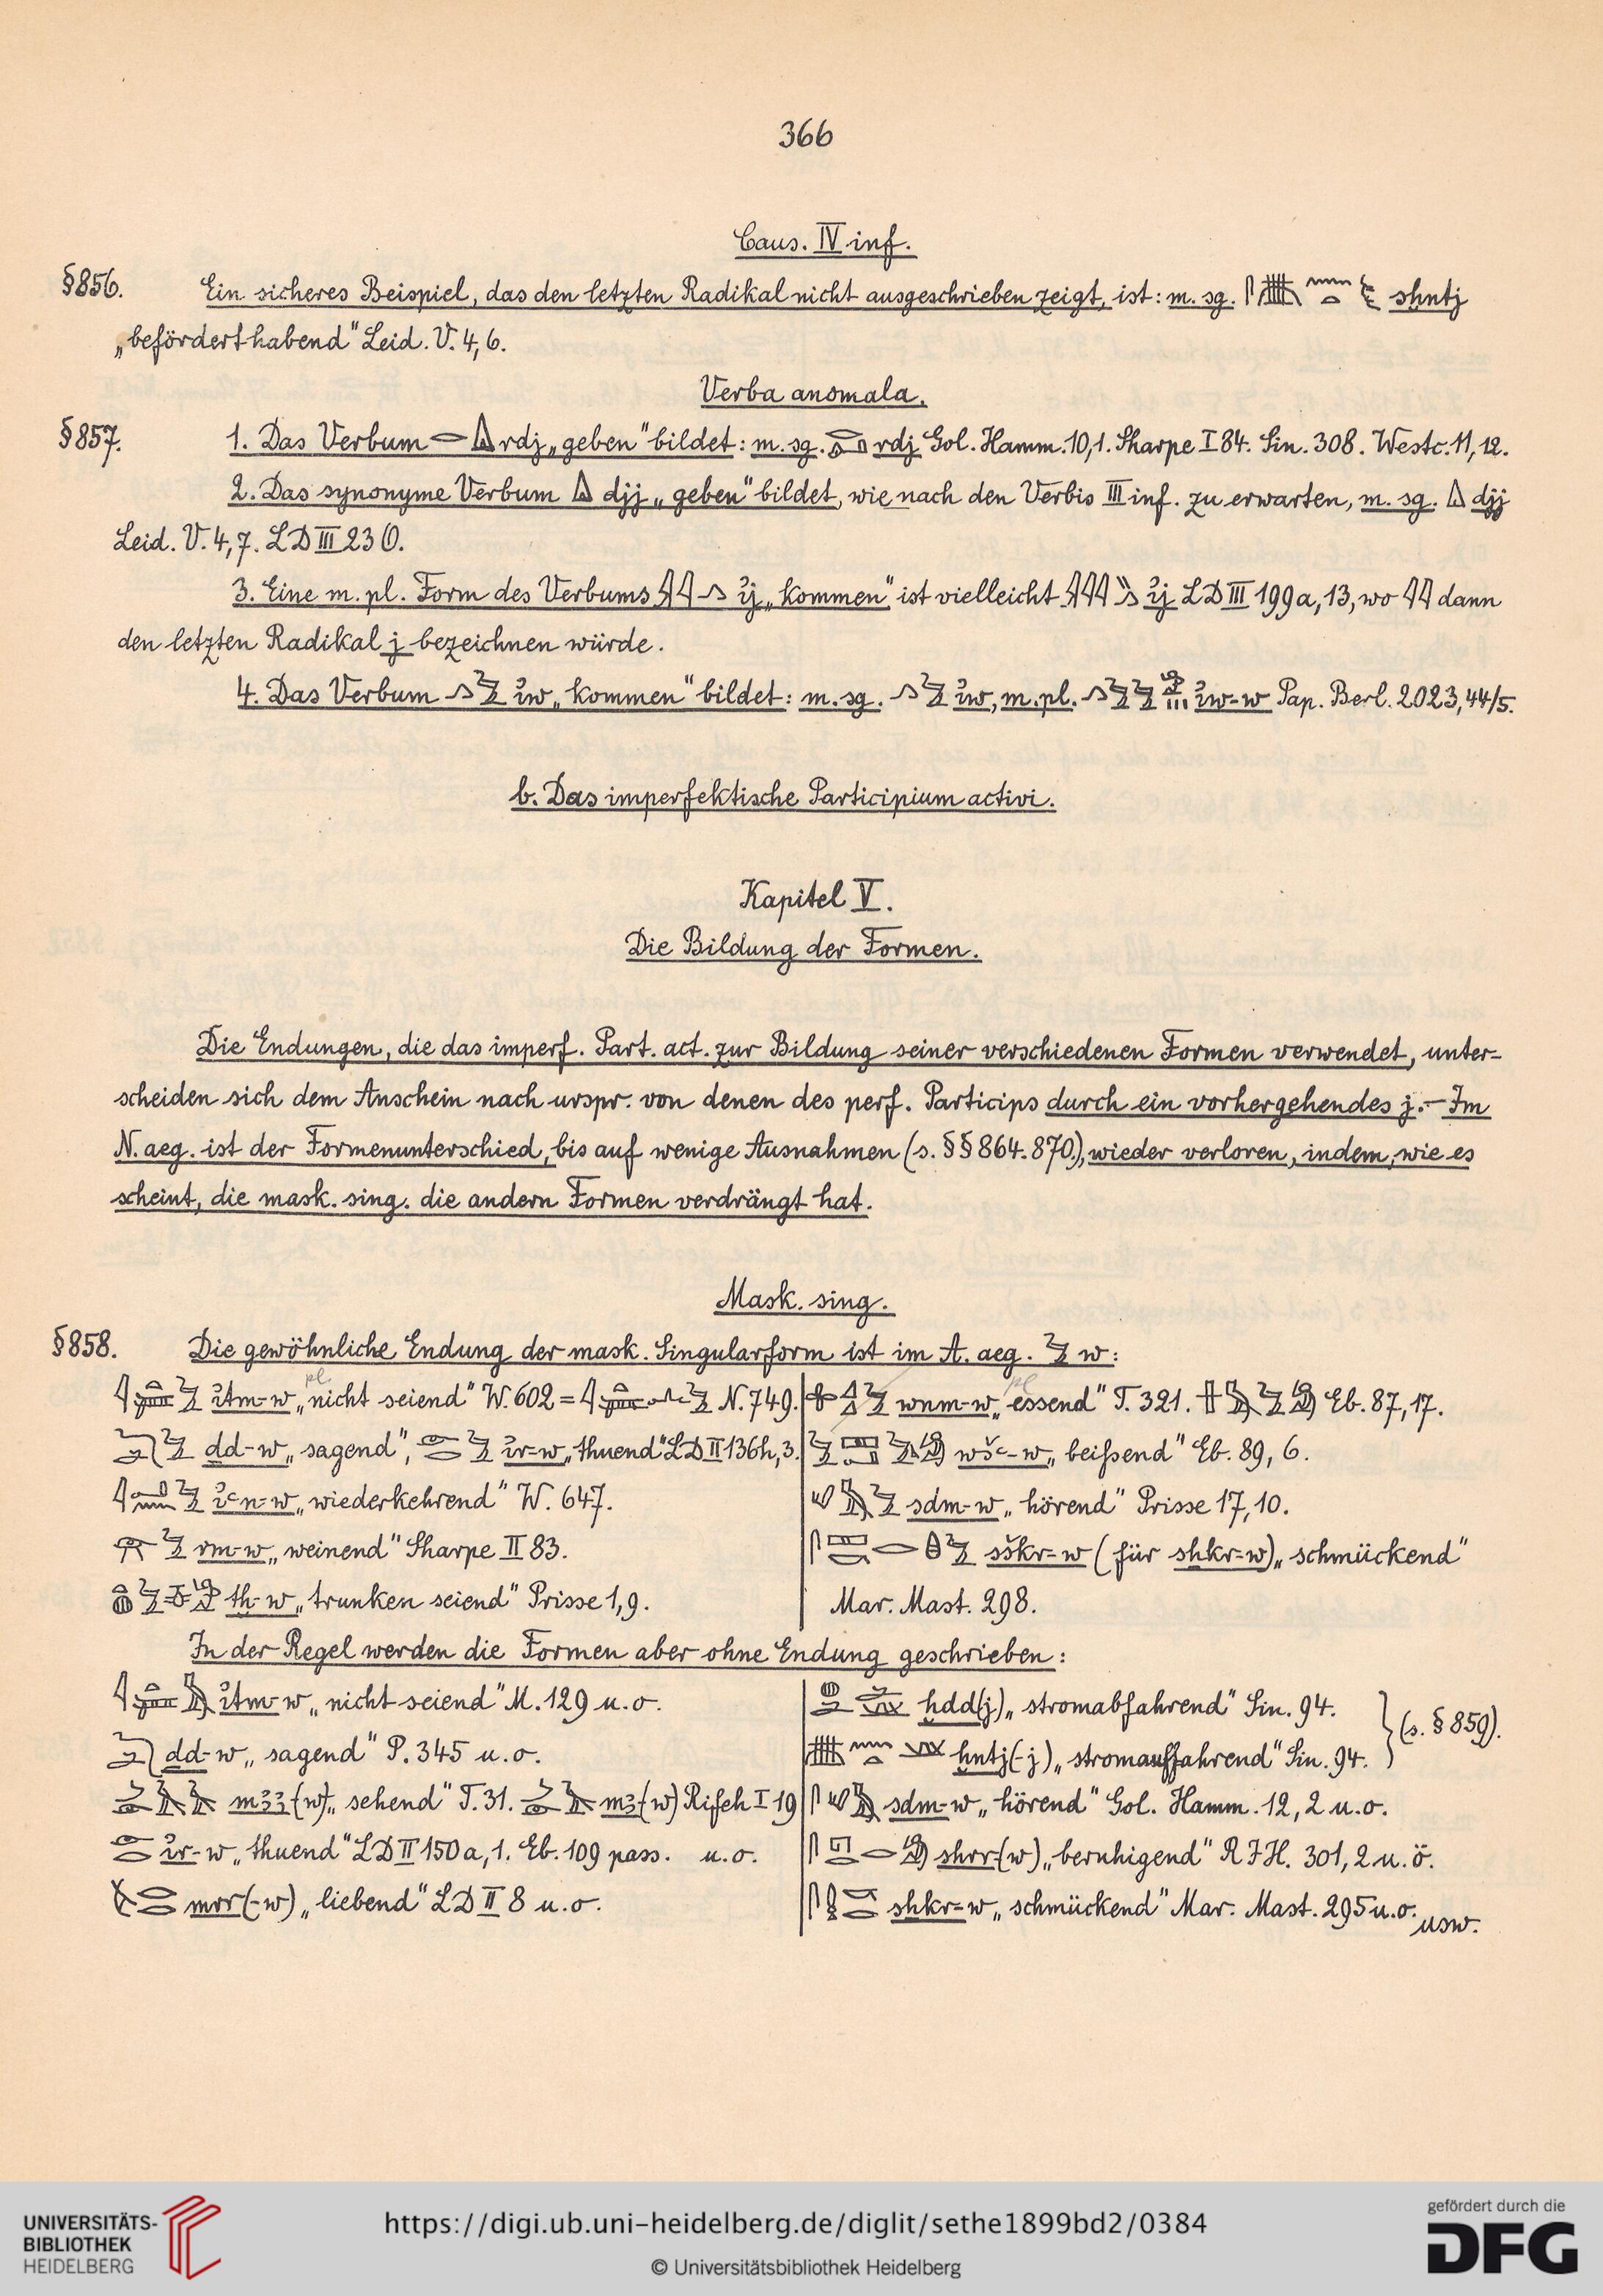 366
Caus. IV inf.
§856. Ein sicheres Beispiel, das den letzten Radikal nicht ausgeschrieben zeigt, ist: m. sg. sḫntj
„befördert habend" Leid. V. 4,6.
Verba anomala.
§857. 1. Das Verbum rdj „geben" bildet: m. sg. rdj Gol. Hamm. 10,1. Sharpe I 84. Sin. 308. Westc. 11, 12.
2. Das synonyme Verbum djj „geben" bildet, wie nach den Verbis III inf. zu erwarten, m. sg. djj
Leid. V. 4,7. LD III 23
3. Eine m. pl. Form des Verbums ij „kommen" ist vielleicht ij LD III 199a, 13, wo dann
den letzten Radikal j bezeichnen würde.
4. Das Verbum iw „kommen" bildet: m. sg. iw, m. pl. iw-w Pap. Berl. 2023, 44/5.
b. Das imperfektische Participium activi.
Kapitel V.
Die Bildung der Formen.
Die Endungen, die das imperf. Part. act. zur Bildung seiner verschiedenen Formen verwendet, unter-
scheiden sich dem Anschein nach urspr. von denen des perf. Particips durch ein vorhergehendes j. – Im
N. aeg. ist der Formenunterschied, bis auf wenige Ausnahmen (s. §§ 864. 870.), wieder verloren, indem, wie es
scheint, die mask. sing. die andern Formen verdrängt hat.
Mask. sing.
§858. Die gewöhnliche Endung der mask. Singularform ist im A. aeg. w:
itm-w „nicht seiend" W. 602 = N. 749.
pl.
dd-w „sagend", ir-w „thuend" LD II 136h, 3.
iꜥn-w „wiederkehrend" W. 647.
rm-w „weinend" Sharpe II 83.
tḫ-w „trunken seiend" Prisse 1, 9.
wnm-w „essend" T. 321. Eb. 87, 17.
pl
wšꜥ-w „beißend" Eb. 89, 6.
sdm-w „hörend" Prisse 17, 10.
sškr-w (für sḫkr-w) „schmückend"
Mar. Mast. 298.
In der Regel werden die Formen aber ohne Endung geschrieben:
itm-w „nicht seiend" M. 129 u. o.
dd-w „sagend" P. 345 u. o.
mꜣꜣ(-w) „sehend" T. 31. mꜣ(-w) Rifeh I 19
ir-w „thuend" LD II 150a, 1. Eb. 109 pass. u. o.
mrr(-w) „liebend" LD II 8 u. o.
ḫdd(j) „stromabfahrend" Sin. 94.
ḫntj(-j) „stromauffahrend" Sin. 94.
(s. § 859).
sdm-w „hörend" Gol. Hamm. 12, 2 u. o.
shrr(-w) „beruhigend" RIH. 301, 2 u. ö.
sḫkr-w „schmückend" Mar. Mast. 295 u. o.
usw.
UNIVERSITÄTS-
BIBLIOTHEK
HEIDELBERG
https://digi.ub.uni-heidelberg.de/diglit/sethe1899bd2/0384
© Universitätsbibliothek Heidelberg
gefördert durch die
DFG